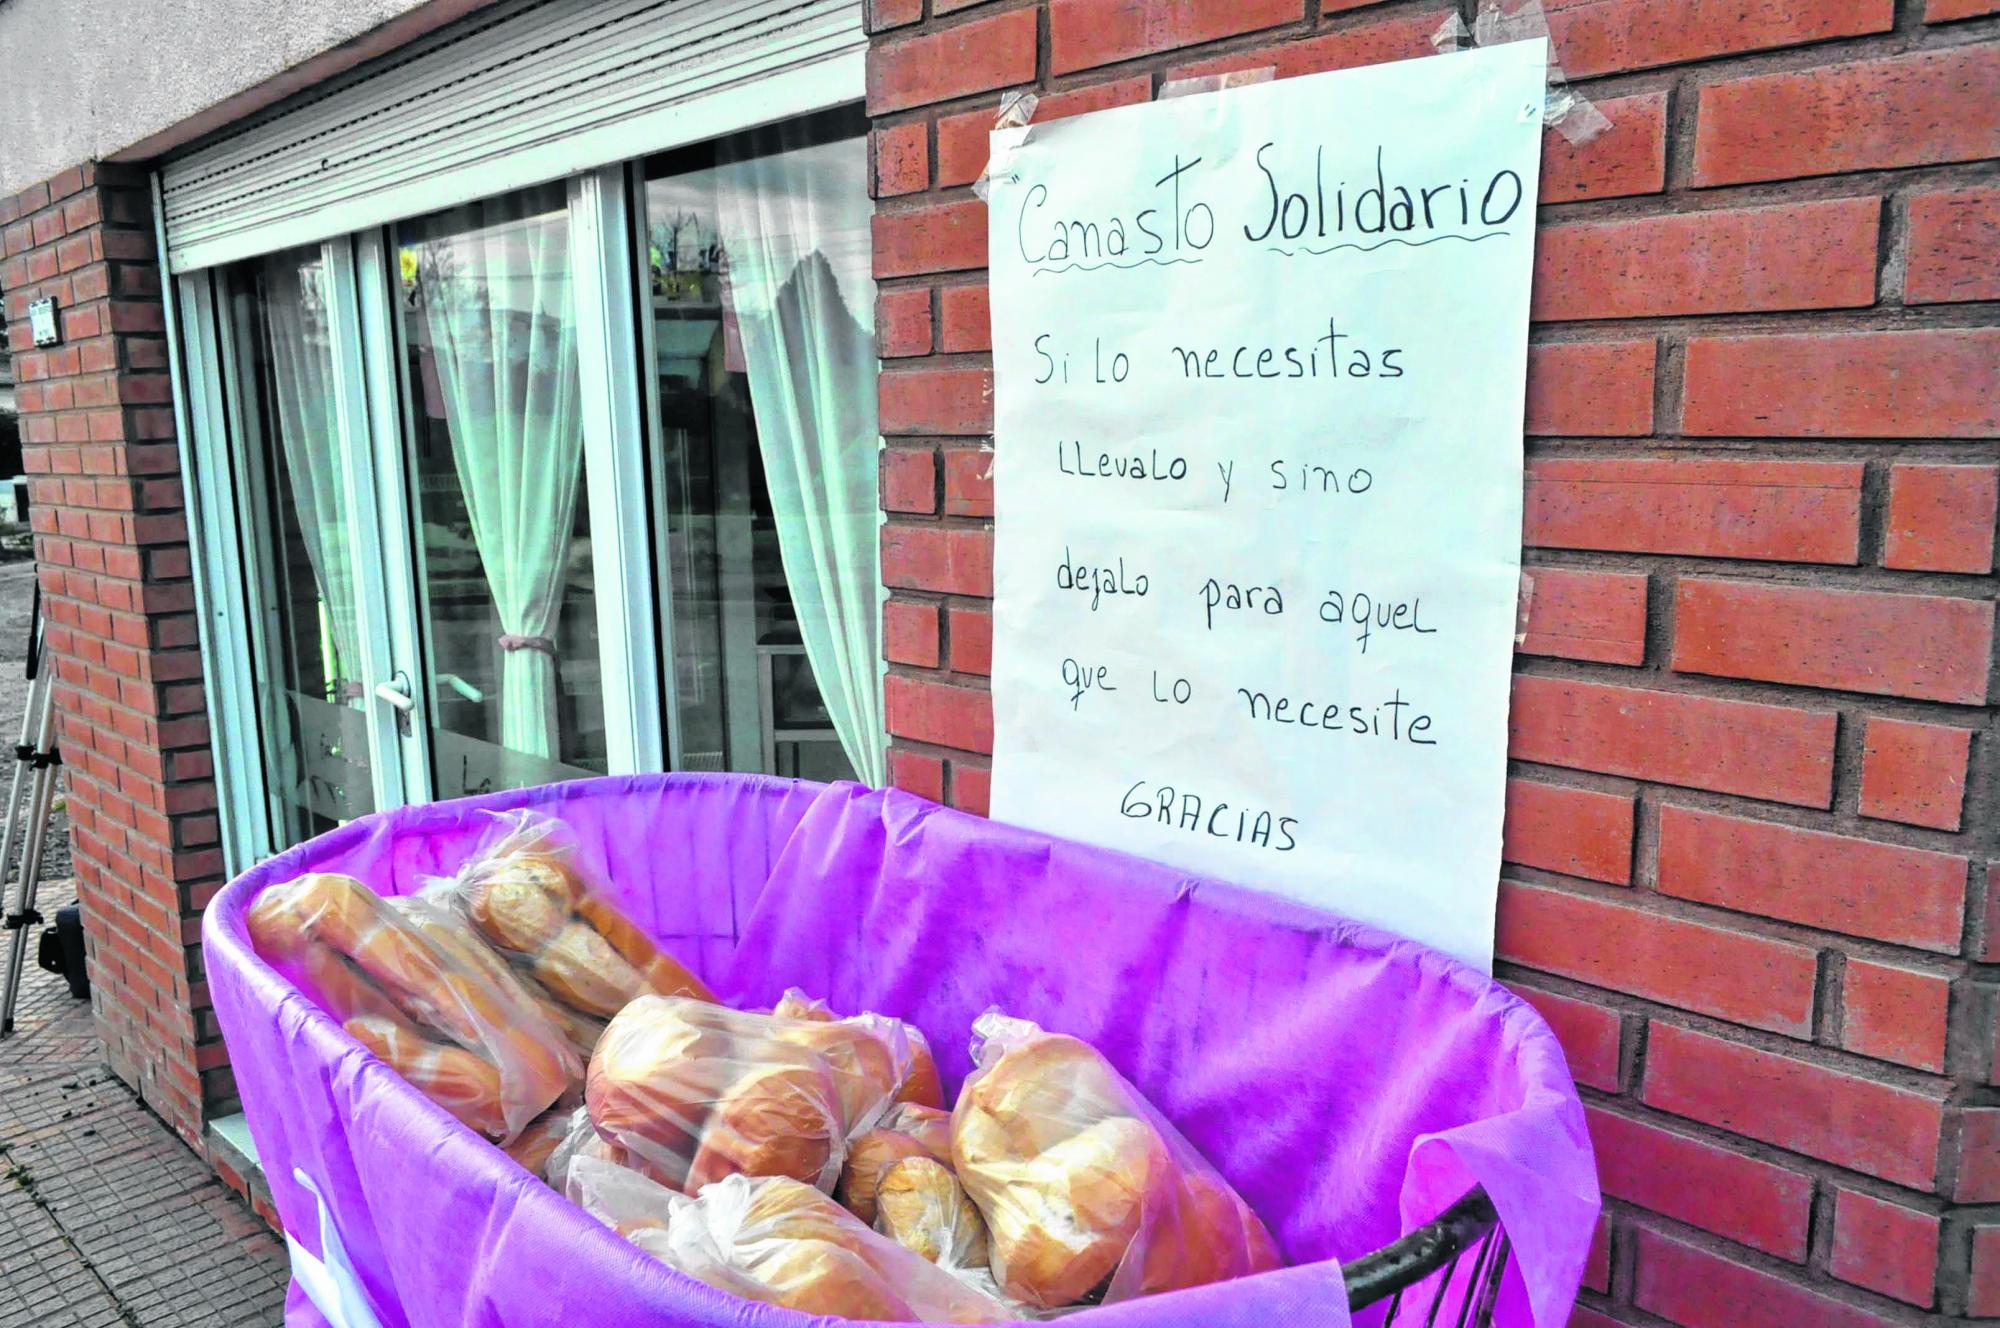 "Canasto Solidario"
Si lo necesitas
LLevaLo y sino
dejaLo para aqueL
que Lo necesite
GRACiAS